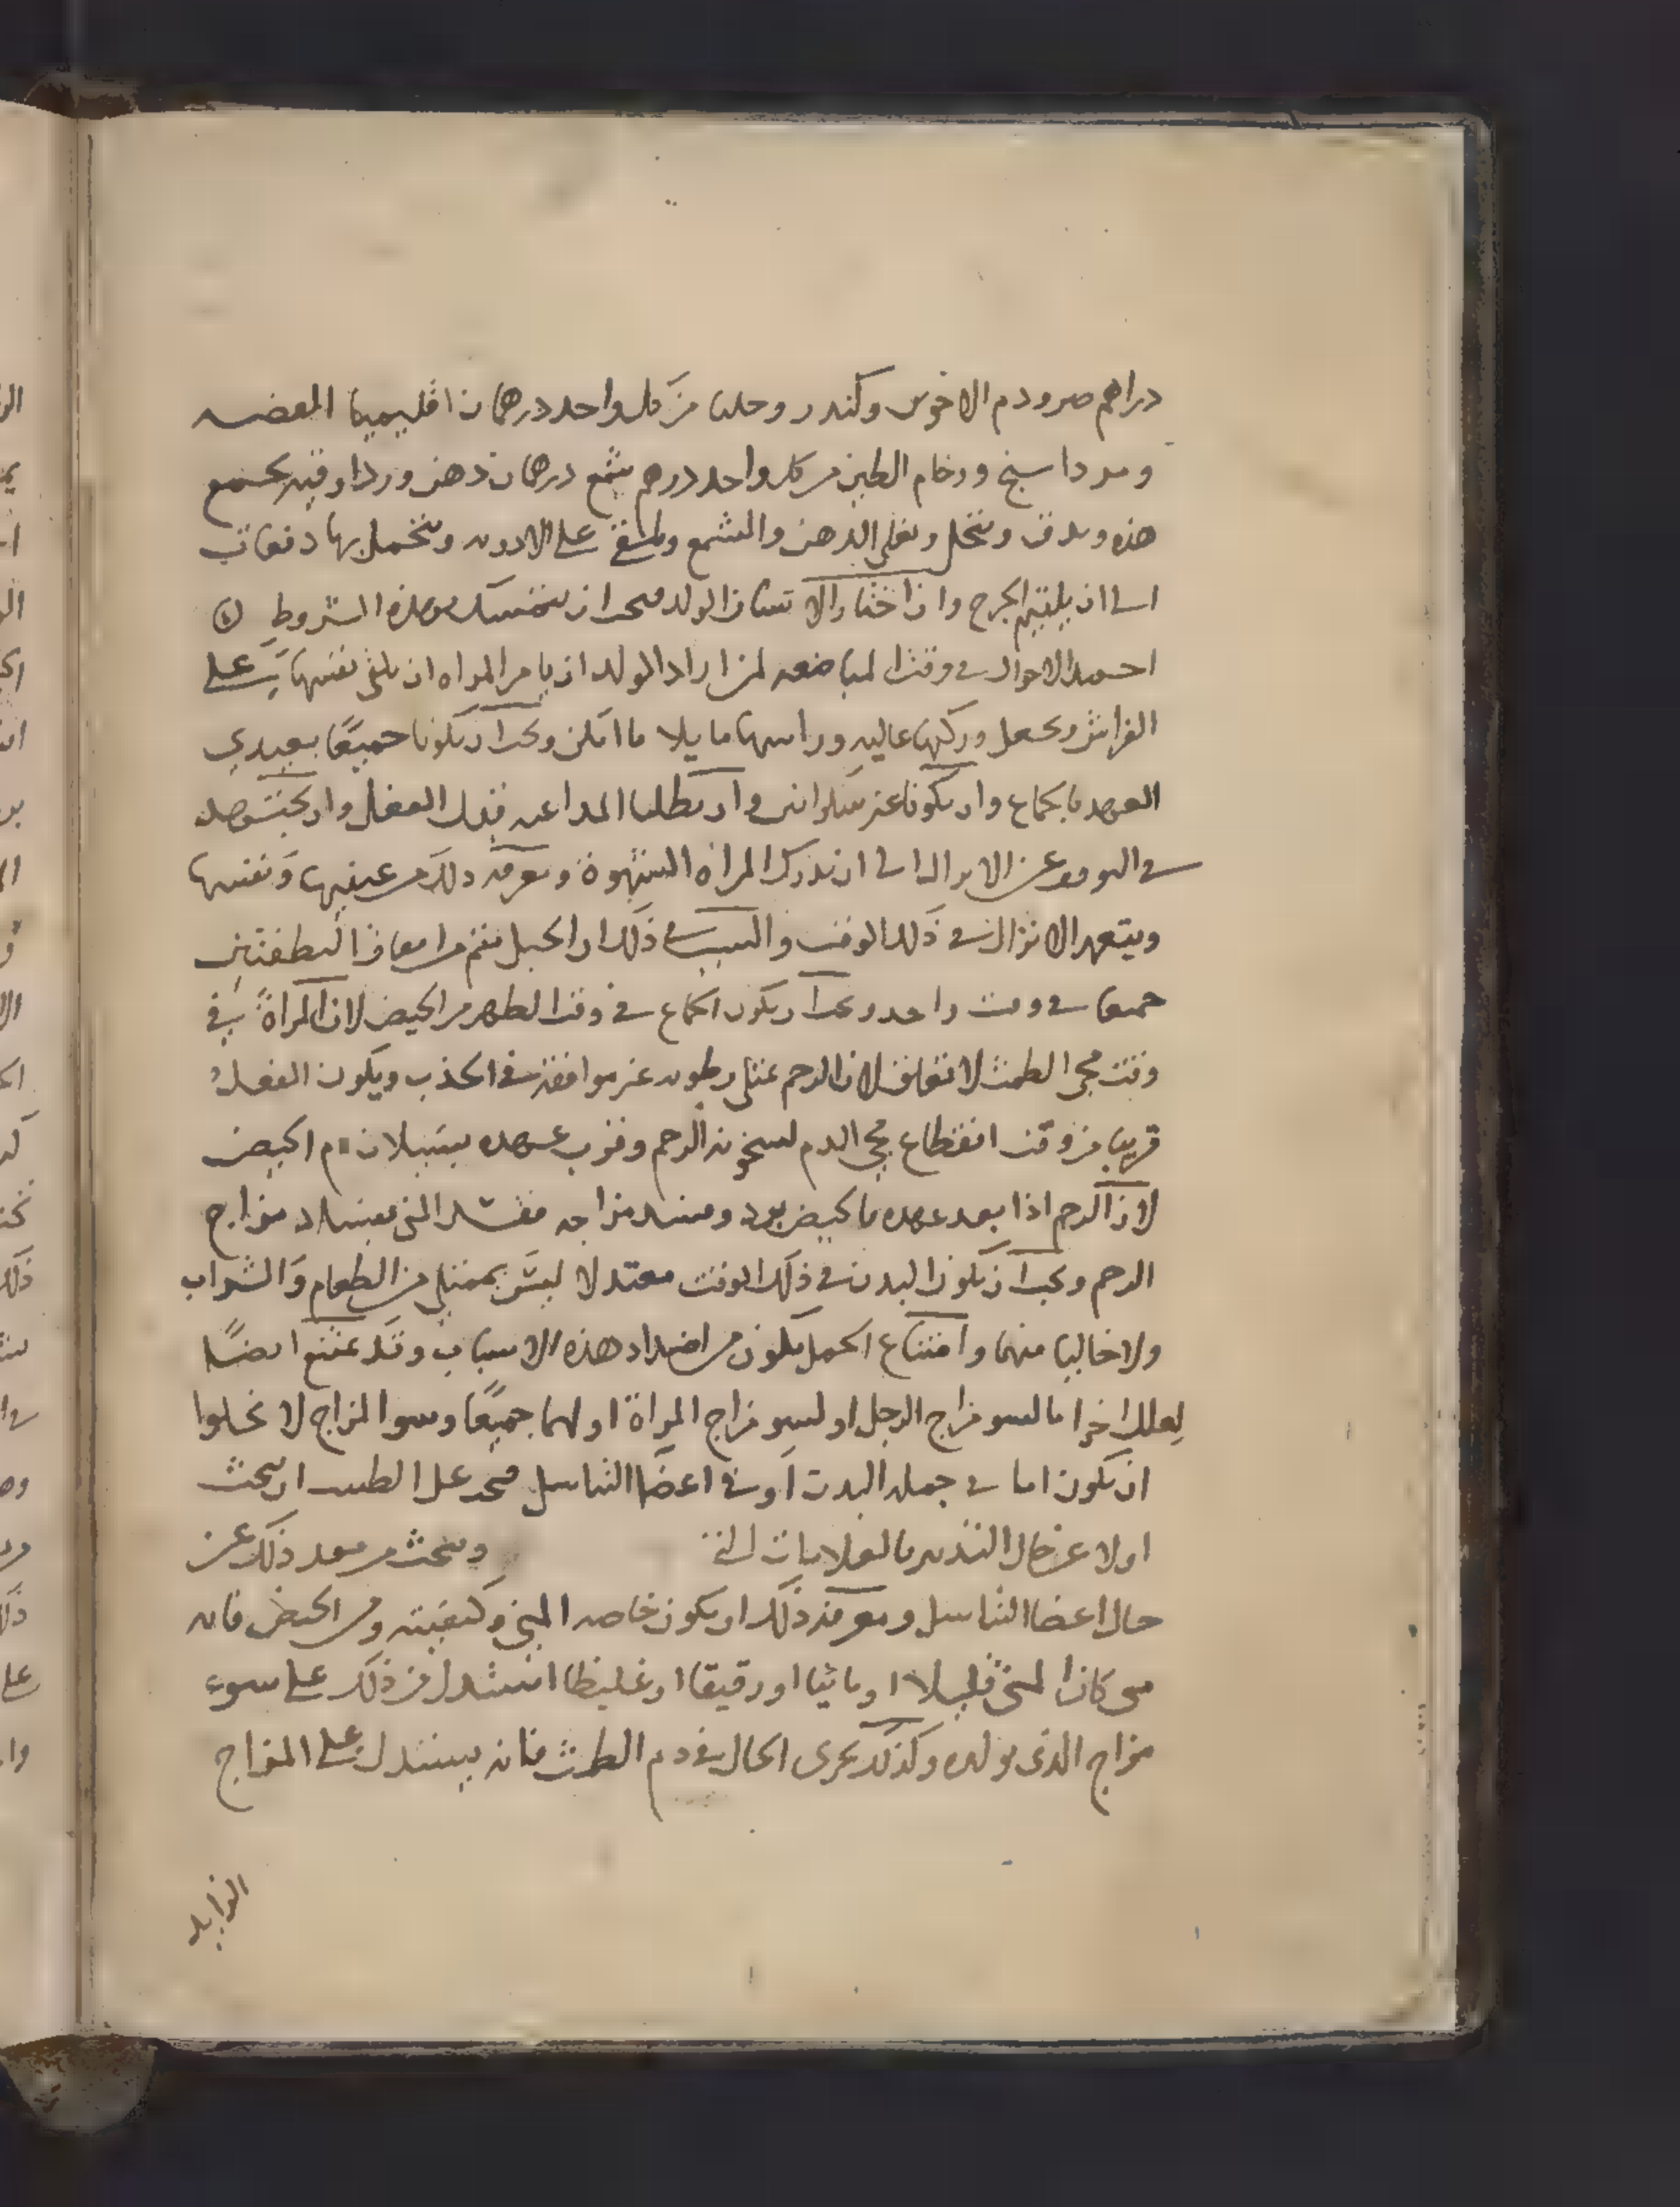 دراهم صبر ودم الاخوين وكندر وحلبا من كل واحد درهمان اقليميا الفضه
ومرداسنج ورخام الطين من كل واحد درهم شمع درهمان دهن ورد اوقيه يجمع
هذه ويدق وينخل ويغلى الدهن والشمع ويلقى على الادويه ويتحمل بها دفعات
الى ان يلتحم الجرح واذا اختار الانسان الولد فيجب ان يتمسك بهذه الشروط
احمد الاحوال في وقت المباضعه لمن اراد الولد ان يامر المراه ان تلقي نفسها على
الفراش ويجعل وركها عاليه وراسها مايلا ما امكن ويجب ان يكونا جميعًا بعيدي
العهد بالجماع وان يكونا غير سكرانين وان يطلبا المداعبه قبل الفعل وان يجتهد
في عن الانزال الى ان تدرك المراة الشهوة ومعرفه ذلك من عينيها ونفسها
ويتعمد الانزال في ذلك الوقت والسبب في ذلك ان الحبل يتم من اتفاق النطفتين
جميعا في وقت واحد ويجب ان يكون الجماع في وقت الطهر من الحيض لان المراةَ في
وقت مجي الطمث لا تعلق لان الرحم تمتلي رطوبه غير موافقه في الجذب ويكون الفعل
قريبا من وقت انقطاع مجي الدم لسخونه الرحم وقرب عهده بسيلان دم الحيض
لان الرحم اذا بعد عهده بالحيض برد وفسد مزاجه ففسد المني بفساد مزاج
الرحم ويجب ان يكون البدن في ذلك الوقت معتدلا ليس بممتلي من الطعام والشراب
ولا خاليا منهما وامتناع الحمل يكون من اضداد هذه الاسباب وقد يمتنع ايضًا
لعلل اخر اما لسو مزاج الرجل او لسو مزاج المراة او لهما جميعًا وسو المزاج لا يخلوا
ان يكون اما في جمله البدن او في اعضا التناسل فيجب على الطبيب ان يبحث
اولا عن حال التدبير بالعلامات التي ويبحث من بعد ذلك عن
حال اعضا التناسل ومعرفه ذلك او يكون خاصه المني وكيفيته ومن الحيض فانه
متى كان المني قليلا او مائيا او رقيقا او غليظا استدل من ذلك على سوء
مزاج الذي يولده وكذلك يجري الحال في دم الطمث فانه يستدل على المزاج
الزايد